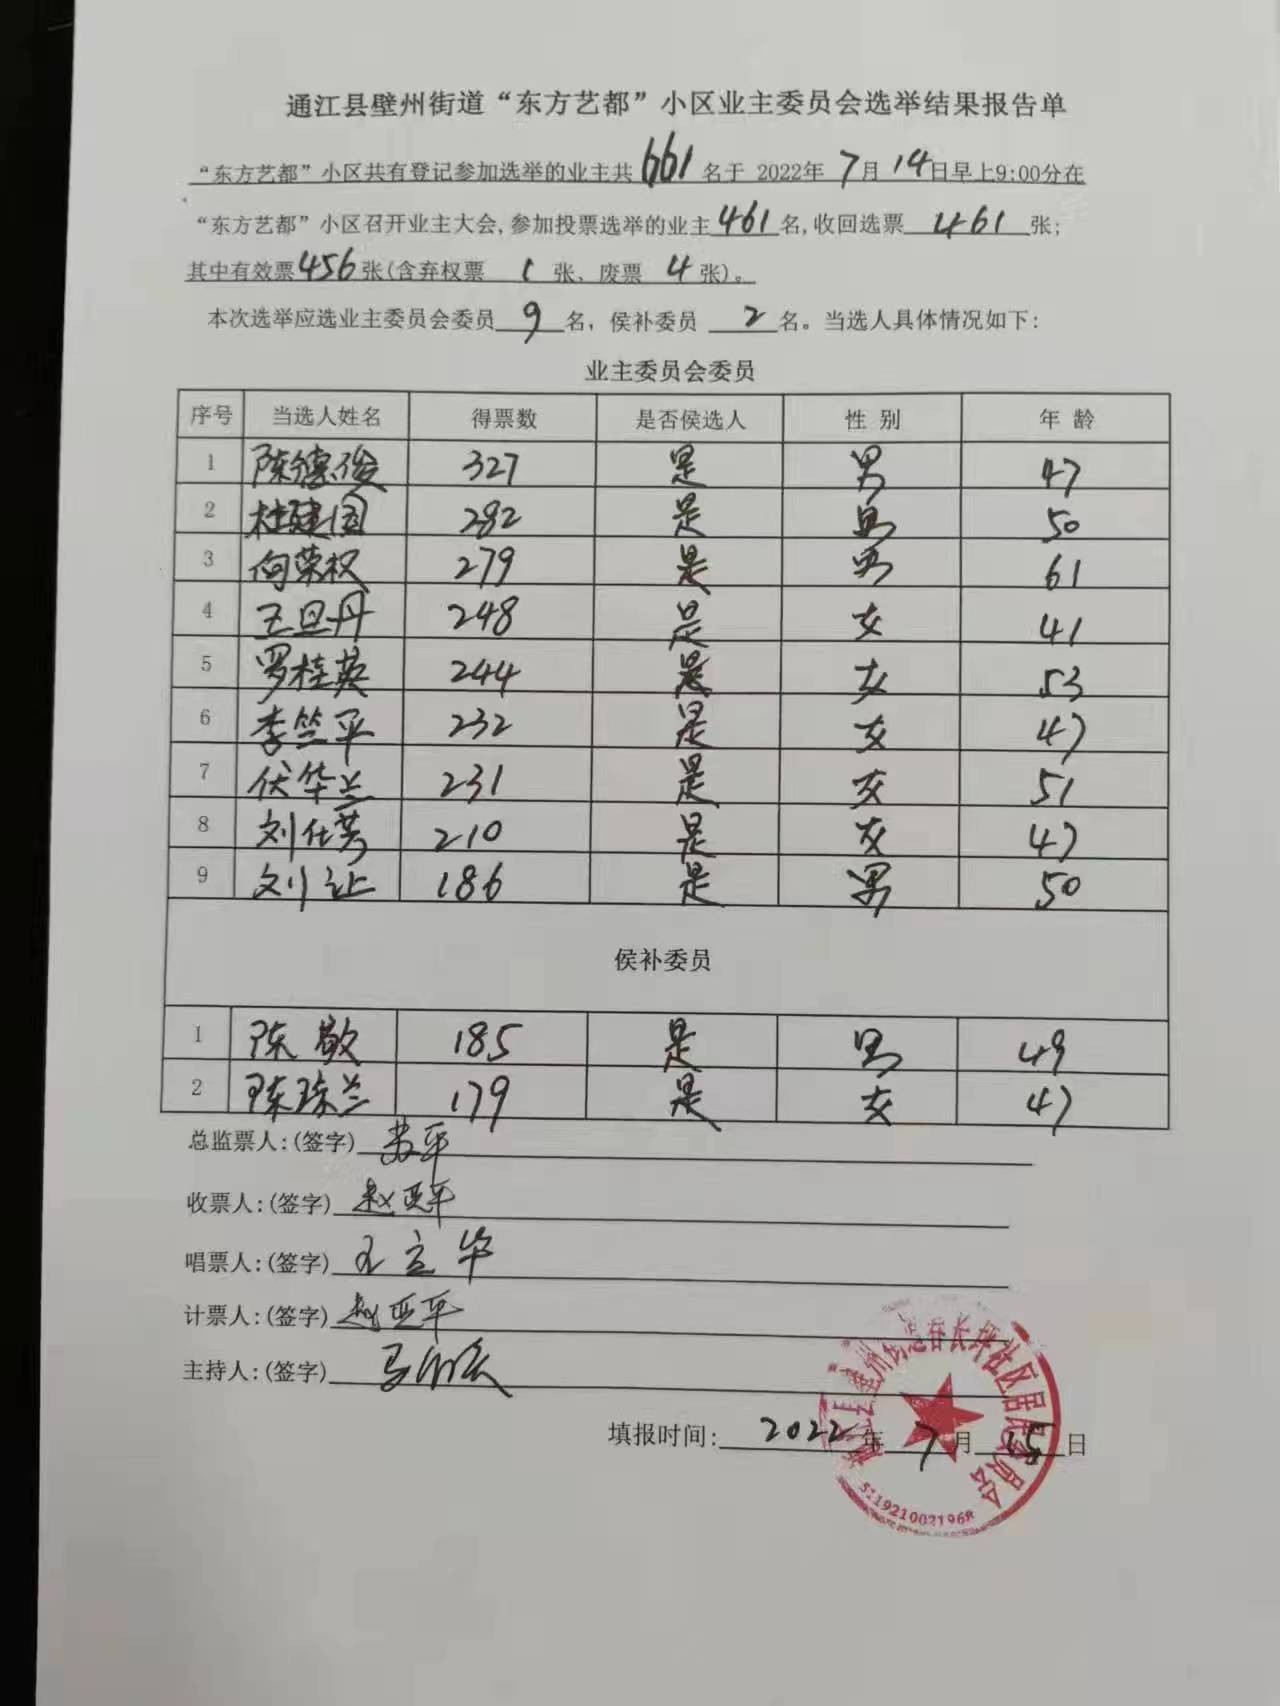 通江县壁州街道“东方艺都”小区业主委员会选举结果报告单
“东方艺都”小区共有登记参加选举的业主共661名于 2022年7月14日早上9:00分在
“东方艺都”小区召开业主大会,参加投票选举的业主461名,收回选票461张;
其中有效票456张(含弃权票 1 张、废票 4 张)。
本次选举应选业主委员会委员9名，侯补委员 2名。当选人具体情况如下:
业主委员会委员
序号 当选人姓名 得票数 是否侯选人 性 别 年 龄
1 陈德俊 327 是 男 47
2 杜建国 282 是 男 50
3 向荣权 279 是 男 61
4 王旦丹 248 是 女 41
5 罗桂英 244 是 女 53
6 李竺平 232 是 女 47
7 伏华兰 231 是 女 51
8 刘仕芳 210 是 女 47
9 刘让 186 是 男 50
侯补委员
1 陈敬 185 是 男 49
2 陈琼兰 179 是 女 47
总监票人:(签字) 苏平
收票人:(签字) 赵亚平
唱票人:(签字) 王立华
计票人:(签字) 赵亚平
主持人:(签字) 马
填报时间: 2022年7月15日
长坪社区居民委员会
5119210021968